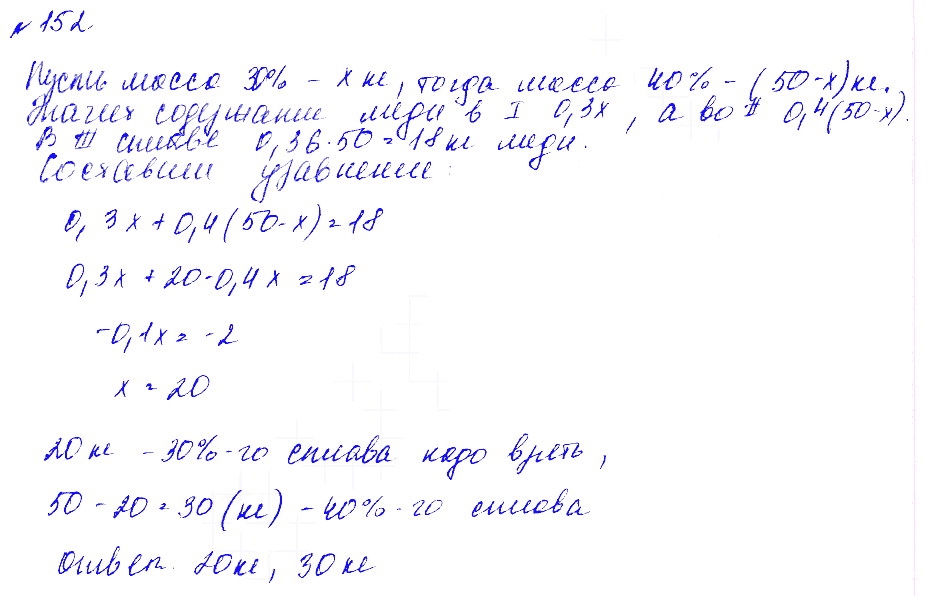 № 152
Пусть масса 30% - x кг, тогда масса 40% - (50-x) кг.
Значит содержание меди в I 0,3x, а во II 0,4(50-x).
В III сплаве 0,36·50=18кг меди.
Составим уравнение:
0,3x+0,4(50-x)=18
0,3x+20-0,4x=18
-0,1x=-2
x=20
20кг - 30%-го сплава надо взять,
50-20=30(кг) - 40%-го сплава
Ответ. 20кг, 30кг